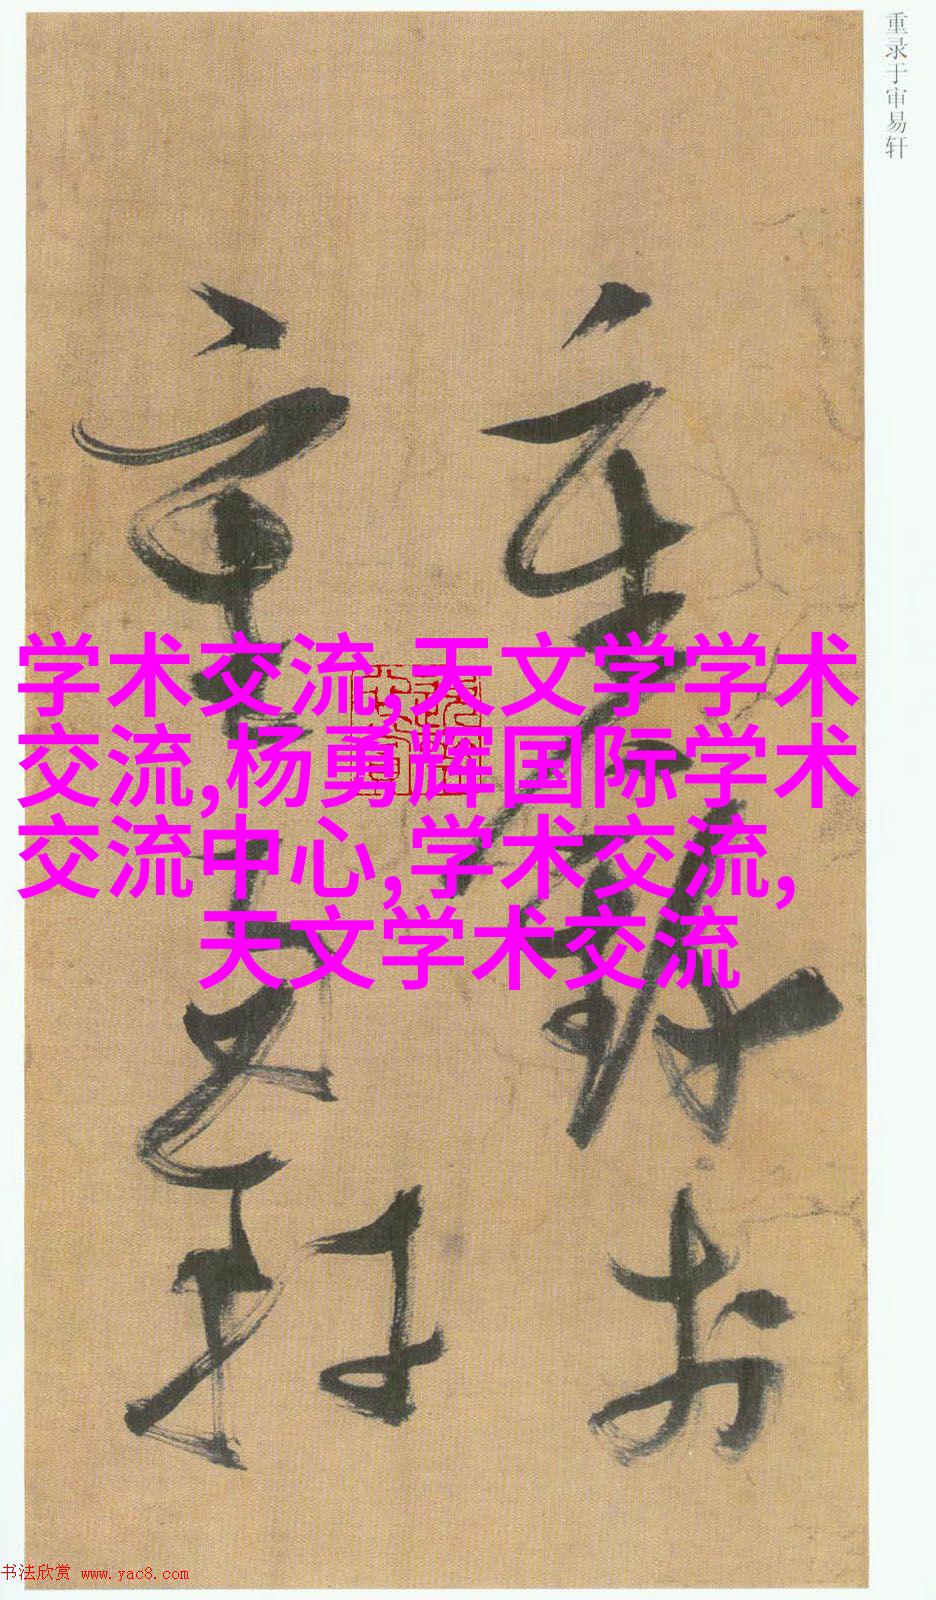 重录于审易轩
重录于
审易轩
学术交流,天文学学术
交流,杨勇辉国际学术
交流中心,学术交流,
天文学术交流
书法欣赏 www.yac8.com